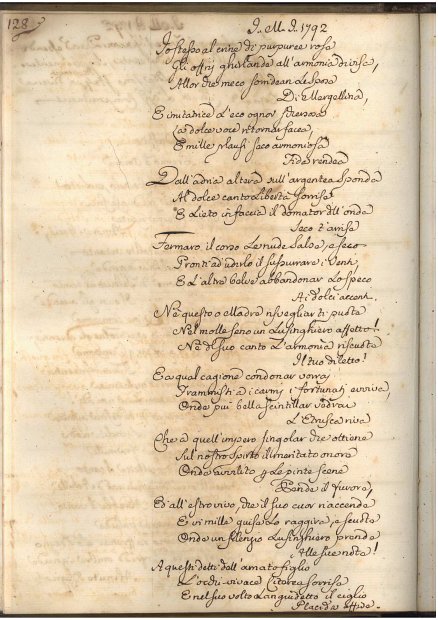 128
I. M. I. 1792
Io stesso al crine di purpuree rose
Gli offrij ghirlande all'armonia divisa,
Allor che meco scindean le Spose
Di Mergellina,
E imitatrice L'eco ognor
La dolce voce ritornar facea,
E mille plausi l'aco armoniosa
Fide rendea
Dall'adria altera sull'argentea sponda
Al dolce canto Libertà sorrise
E Lieto in faccia il domator dell'onde
Seco s'arrise
Fermaro il corso Le nude Salse, e seco
Pronti ad udirlo il sussurrare i Venti,
E L'altre belve abbandonar Lo speco
Ai dolci accenti.
Nè questo o elladra risvegliar ti puote
Nel molle seno un Lusinghiero affetto!
Nè del suo canto L'armonia riscuote
Il tuo diletto!
E a qual cagione condonar vorraj
Frammisti a i carmi i fortunati evviva,
Onde più bella scintillar vedrai
L'Etrusca riva
Che a quell'impero singolar che ottiene
Sul nostro spirto il meritato onore
Onde avvilito p Le pinte scene
Rende il furore,
Ed all'estro vivo, che il suo cuor n'accende
E in mille guise Lo raggira, e scuote
Onde un silenzio Lusinghiero prende
Alle sue note!
A questi detti dell'amato figlio
L'occhi vivace Citerea sorrise
E nel suo volto Languidetto il ciglio
Placida affise.